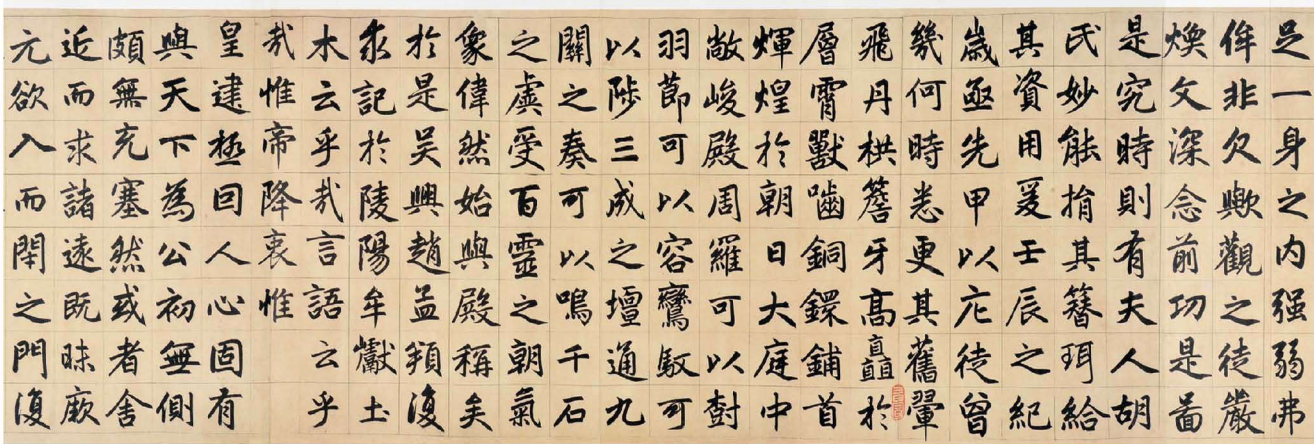 足一身之内强弱弗
侔非欠歟觀之徒嚴
煥文深念前功是啚
是究時則有夫人胡
氏妙能捐其簪珥給
其資用爰壬辰之紀
歲亟先甲以庀徒曾
幾何時悉更其舊翬
飛丹栱簷牙髙矗於
層霄獸嚙銅鐶鋪首
輝煌於朝日大庭中
敞峻殿周羅可以樹
羽節可以容鸞馭可
以陟三成之壇通九
關之奏可以鳴千石
之虡受百靈之朝氣
象偉然始與殿稱矣
於是吴興趙孟頫復
求記於陵陽牟巘土
木云乎哉言語云乎
哉惟帝降衷惟
皇建極回人心固有
與天下為公初無側
頗無充塞然或者舍
近而求諸遠既昧厥
元欲入而閉之門復